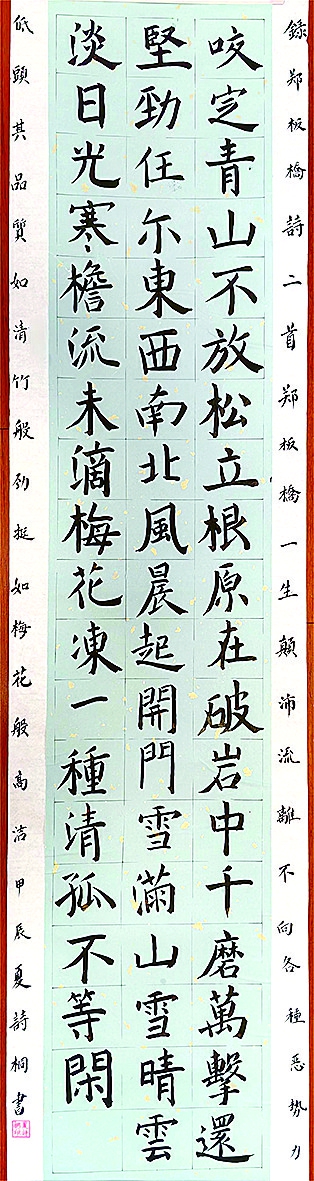 錄郑板橋詩二首郑板橋一生顛沛流離不向各種恶势力
咬定青山不放松立根原在破岩中千磨萬擊還
堅勁任尔東西南北風晨起開門雪滿山雪晴雲
淡日光寒檐流未滴梅花凍一種清孤不等閑
低頭其品質如清竹般劲挺如梅花般高洁甲辰夏詩桐書